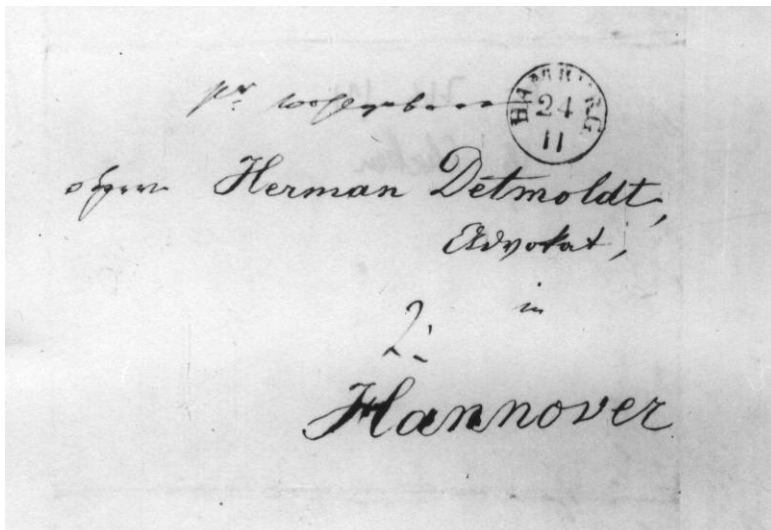 Sr. Wohlgeboren
HAMBURG
24
11
Herrn Herman Detmoldt,
Advokat,
in
2.
Hannover